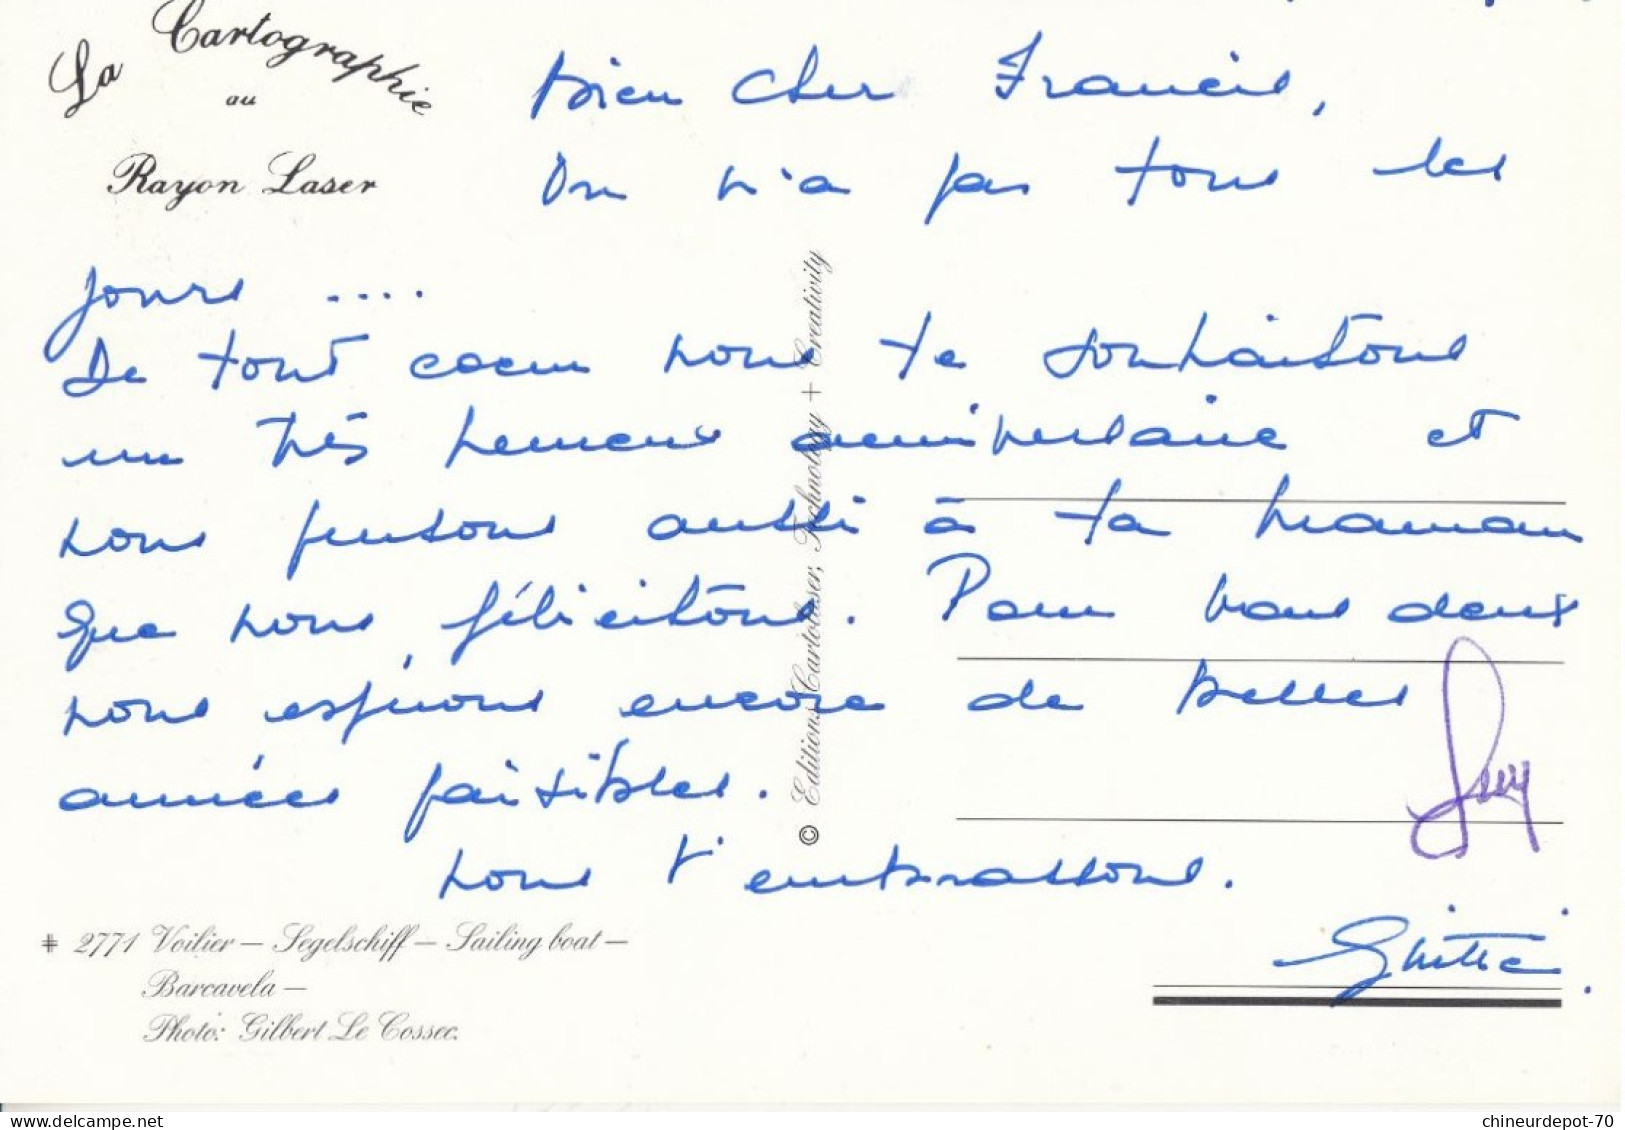 La Cartographie
au
Rayon Laser
Bien cher Francis,
On n'a pas tous les
jours ....
De tout coeur nous te souhaitons
un très heureux anniversaire et
nous pensons aussi à ta maman
que nous félicitons. Pour vous deux
nous espérons encore de belles
années paisibles.
nous t'embrassons.
Guy
© Editions Cartolaser, Technology + Creativity
⋕ 2771 Voilier – Segelschiff – Sailing boat –
Barcavela –
Photo: Gilbert Le Cossec.
www.delcampe.net
chineurdepot-70